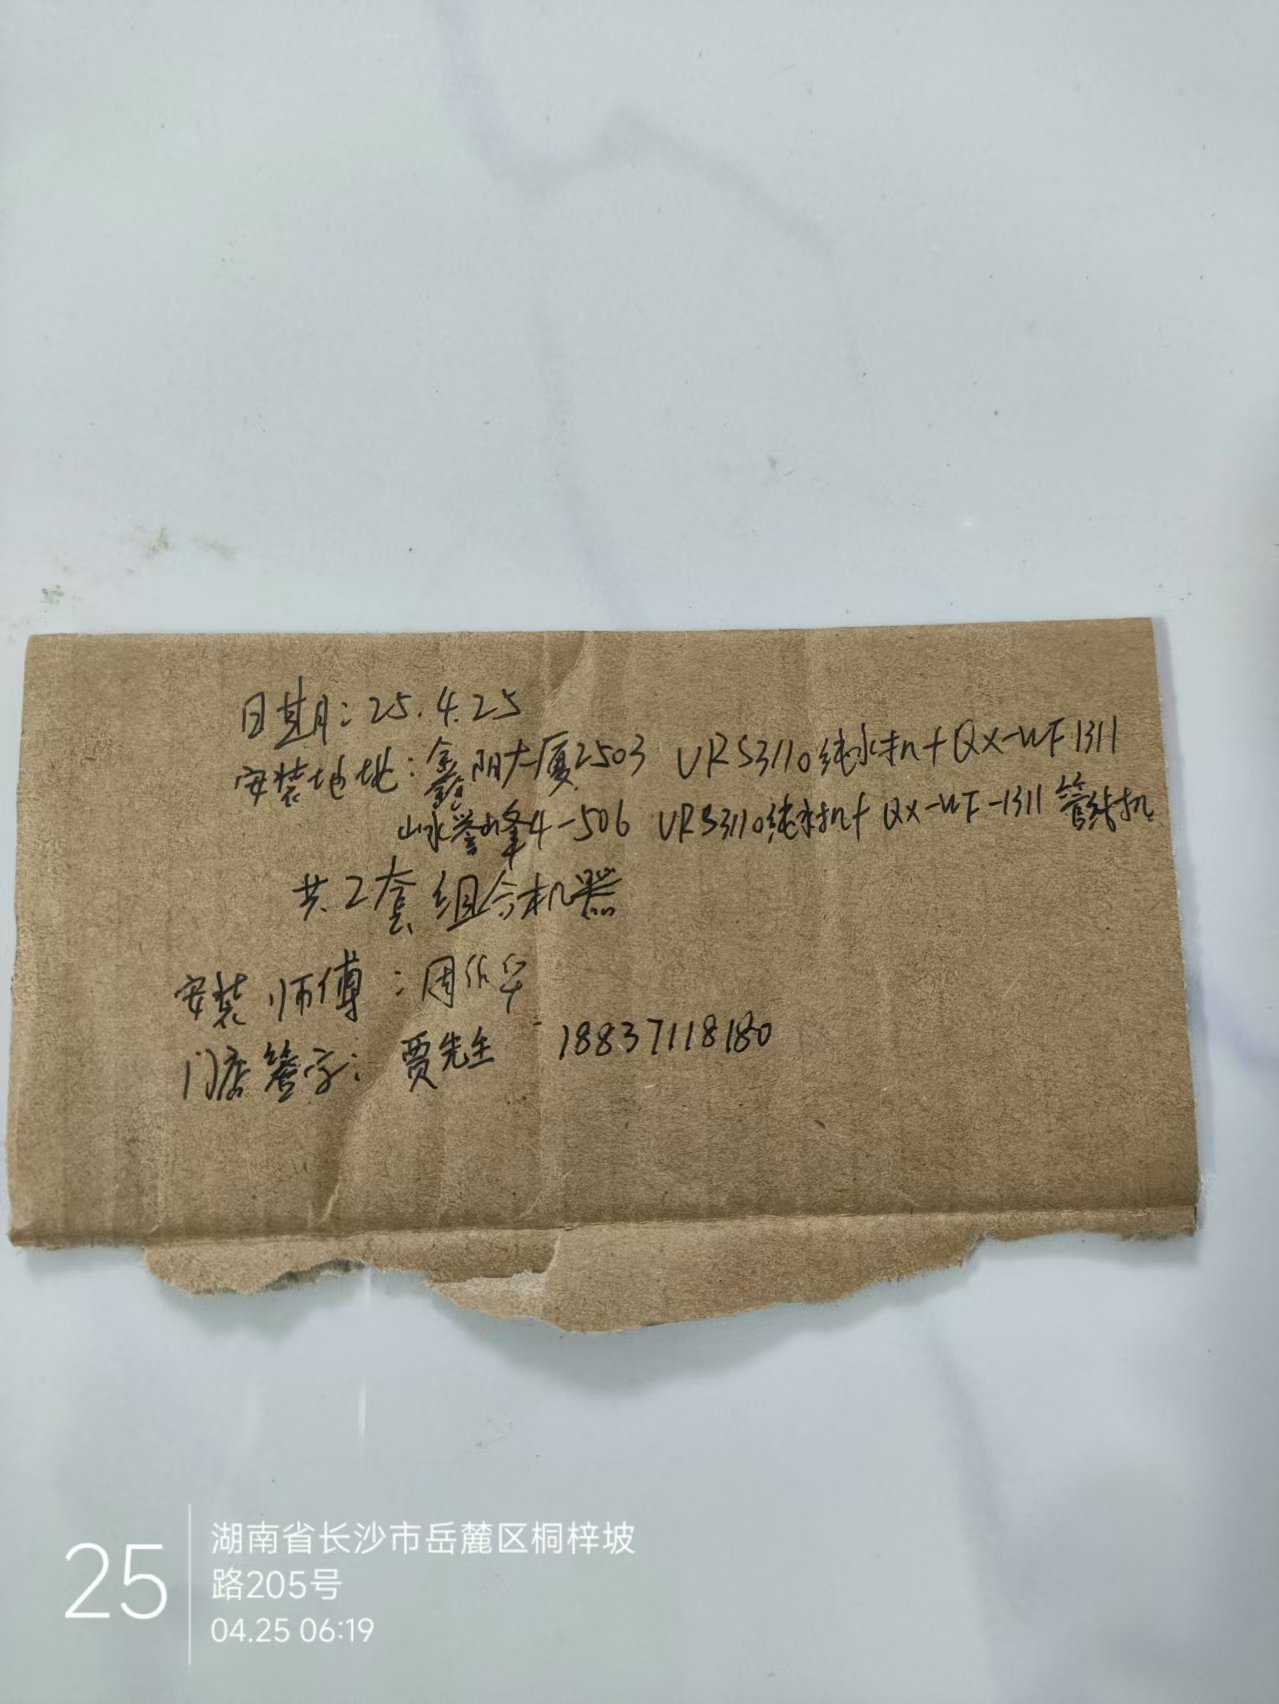 日期：25.4.25
安装地址：鑫阳大厦2503 URS3110纯水机+QX-WF1311
山水誉峰4-506 URS3110纯水机+QX-WF-1311管线机
共2套组合机器
安装师傅：周
门店签字：贾先生 18837118180
25
湖南省长沙市岳麓区桐梓坡
路205号
04.25 06:19